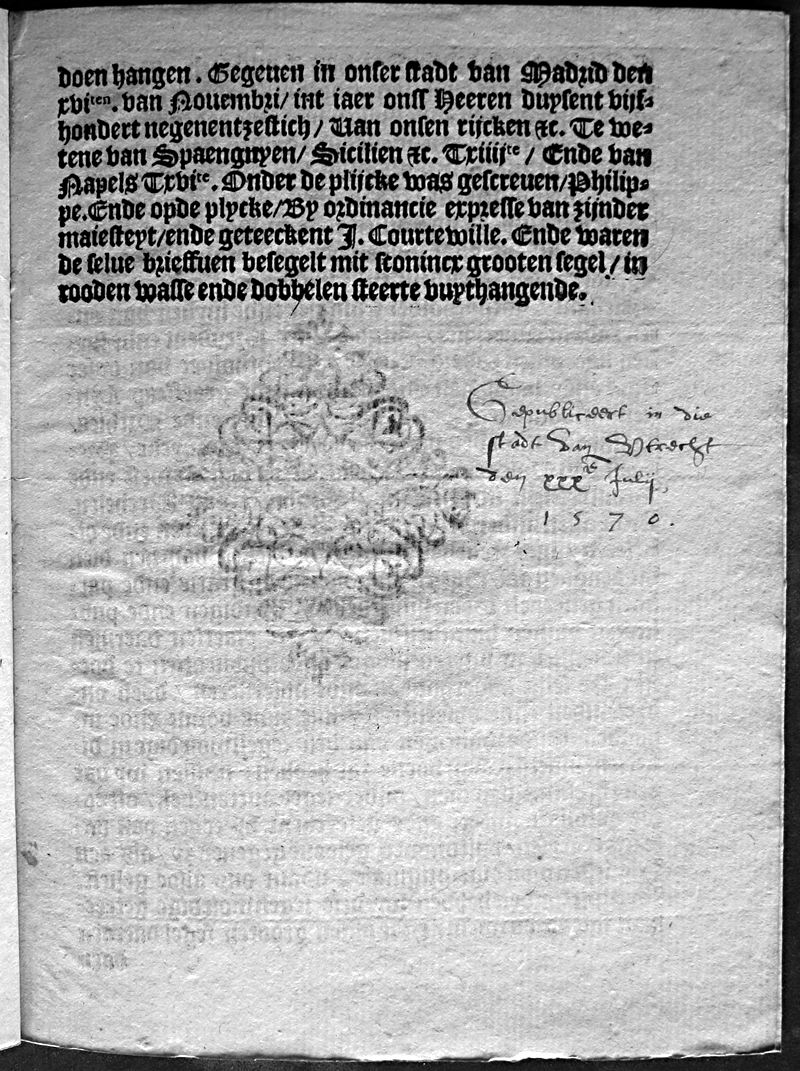 doen hangen. Gegeuen in onser stadt van Madrid den
xviten. van Nouembri/ int iaer onss Heeren duysent vijf⸗
hondert negenentzestich/ Van onsen rijcken ⁊c. Te we⸗
tene van Spaengnyen/ Sicilien ⁊c. Txiiijte / Ende van
Napels Txvite. Onder de plijcke was gescreuen/Philip⸗
pe. Ende opde plycke/By ordinancie expresse van zijnder
maiesteyt/ende geteeckent J. Courtewille. Ende waren
de selue brieffuen besegelt mit sconincx grooten segel/in
rooden wasse ende dobbelen steerte vuythangende.
Gepubliceert in die
stadt van Vtrecht
den xxxte Julij
1570.